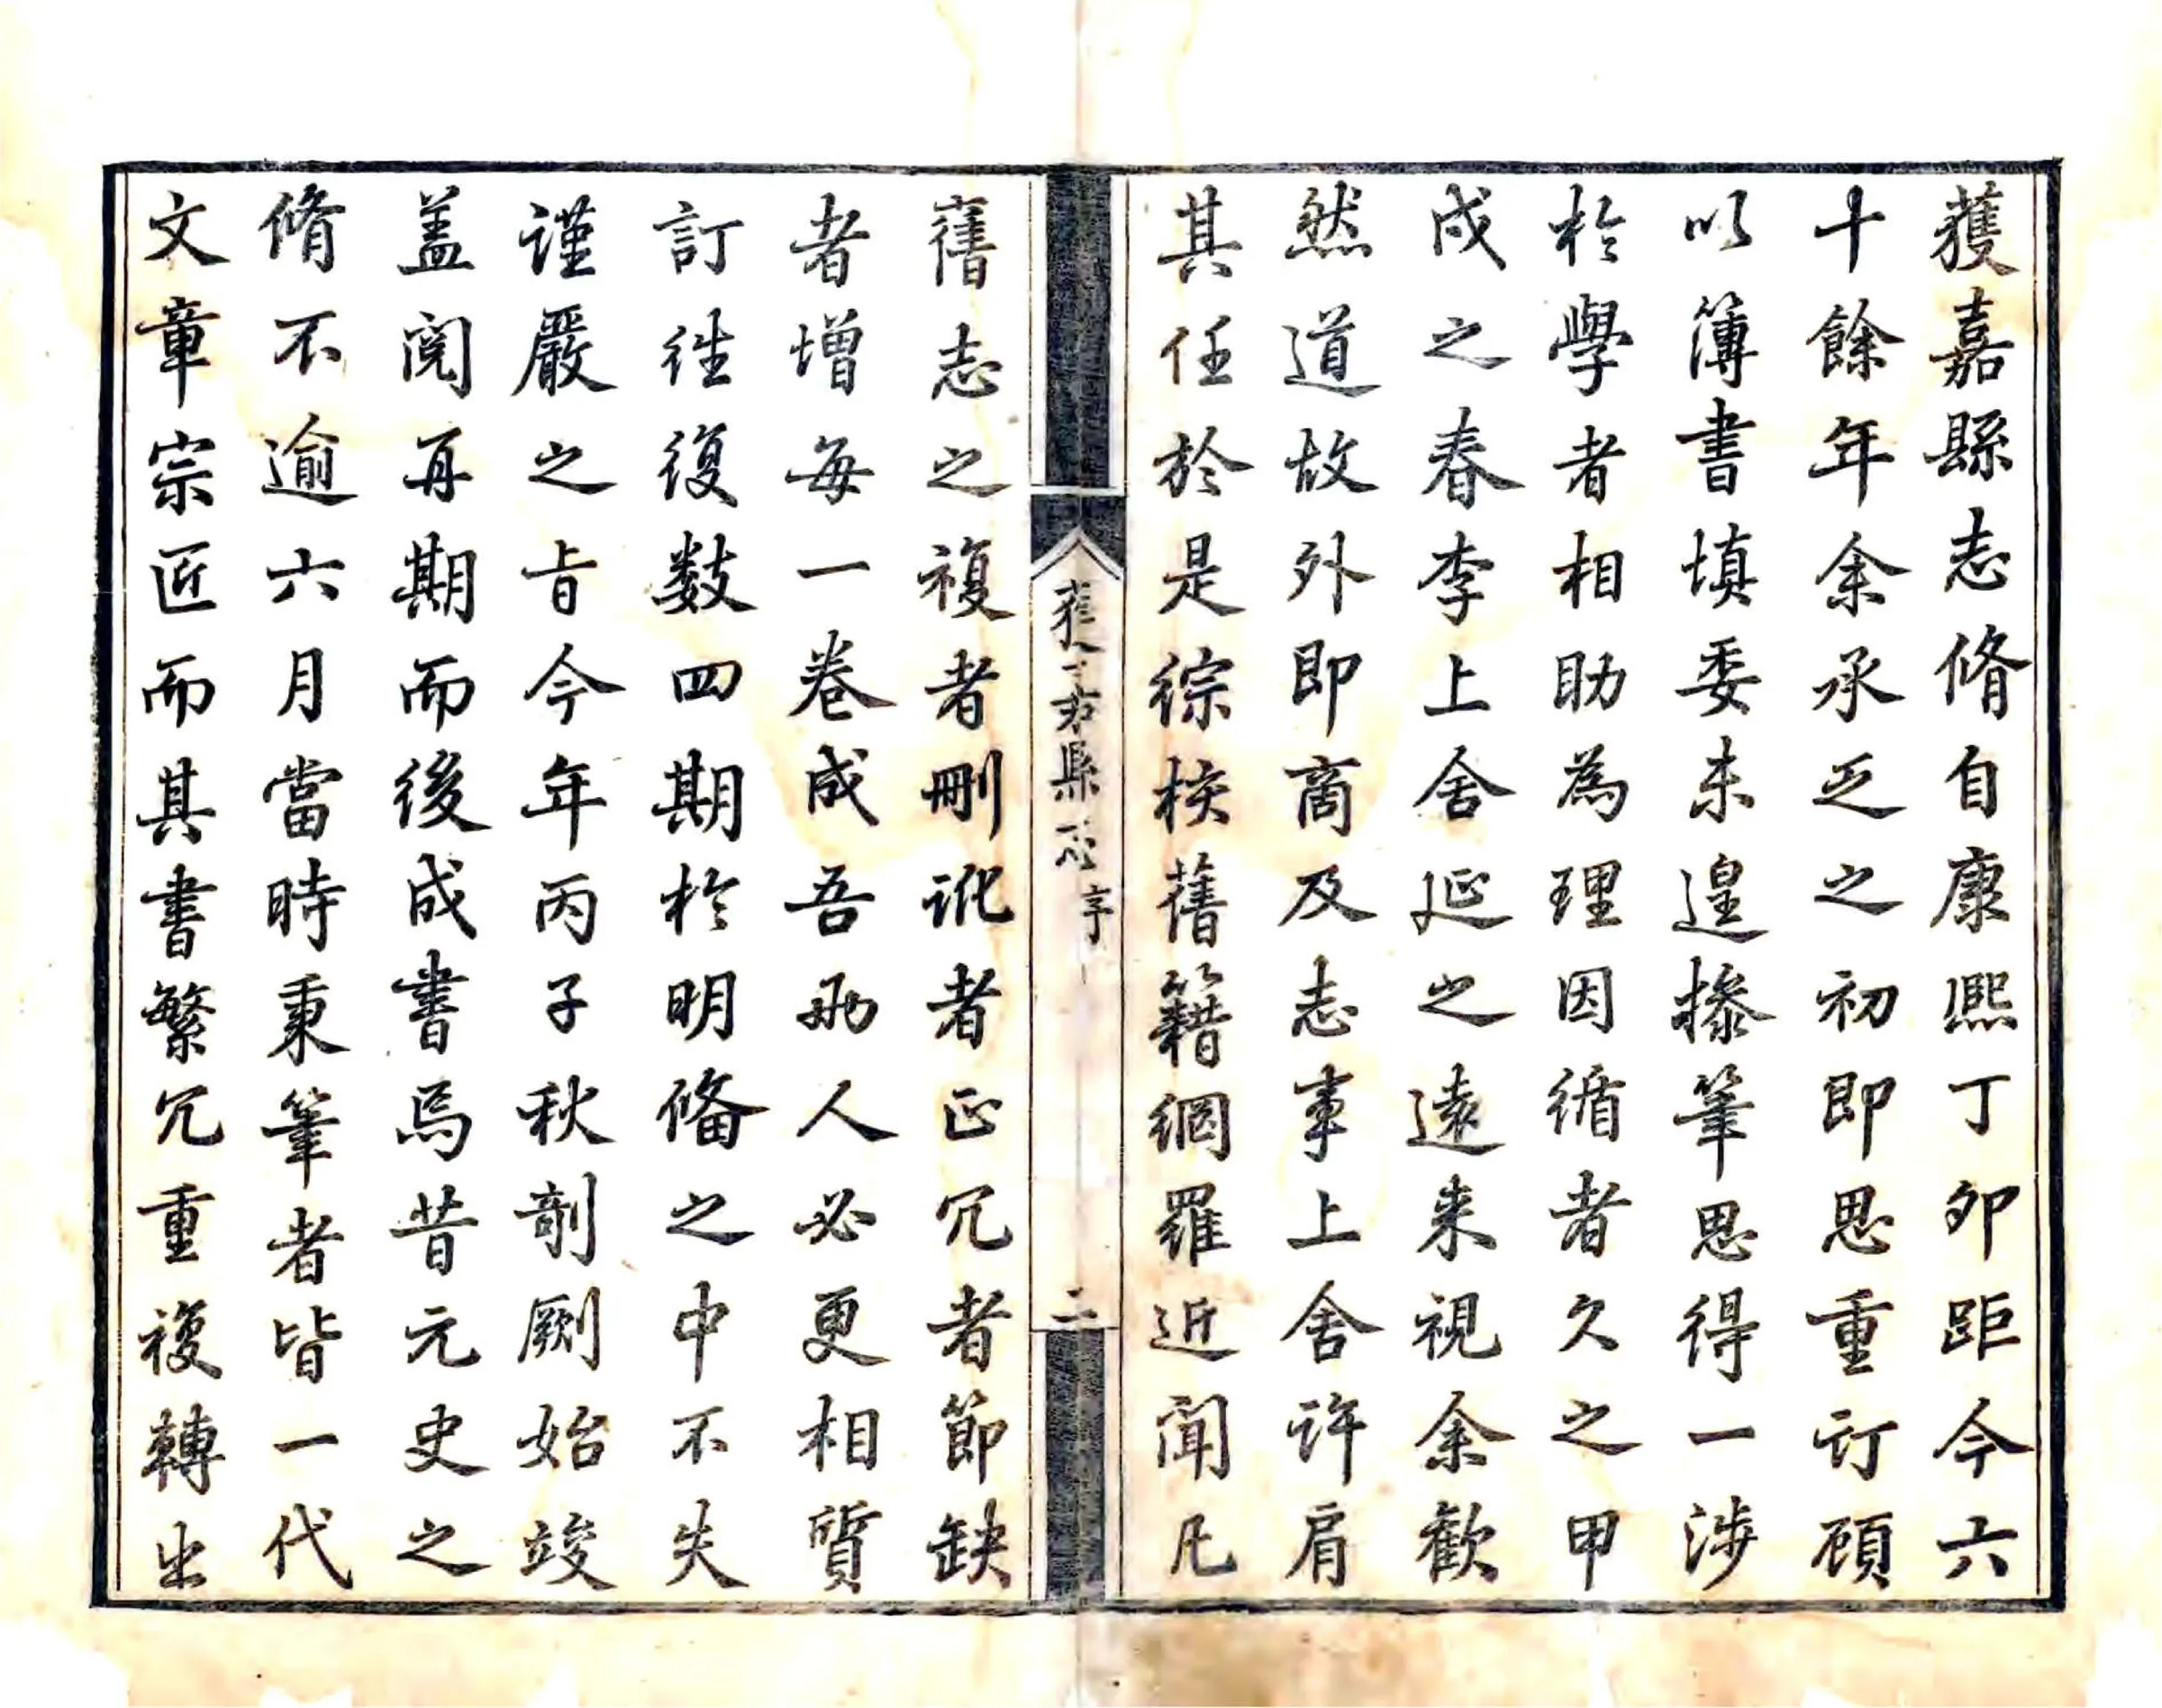 獲嘉縣志脩自康熙丁夘距今六
十餘年余承乏之初即思重訂顧
以簿書填委未遑摻筆思得一涉
於學者相助為理因循者久之甲
戌之春李上舍延之遠来視余歡
然道故外即商及志事上舍許肩
其任於是綜核舊籍網羅近聞凡
獲嘉縣志
序
二
舊志之複者刪訛者正冗者節缺
者增每一卷成吾兩人必更相質
訂往復数四期於明備之中不失
謹嚴之旨今年丙子秋剞劂始竣
盖閱再期而後成書焉昔元史之
脩不逾六月當時秉筆者皆一代
文章宗匠而其書繁冗重複轉出